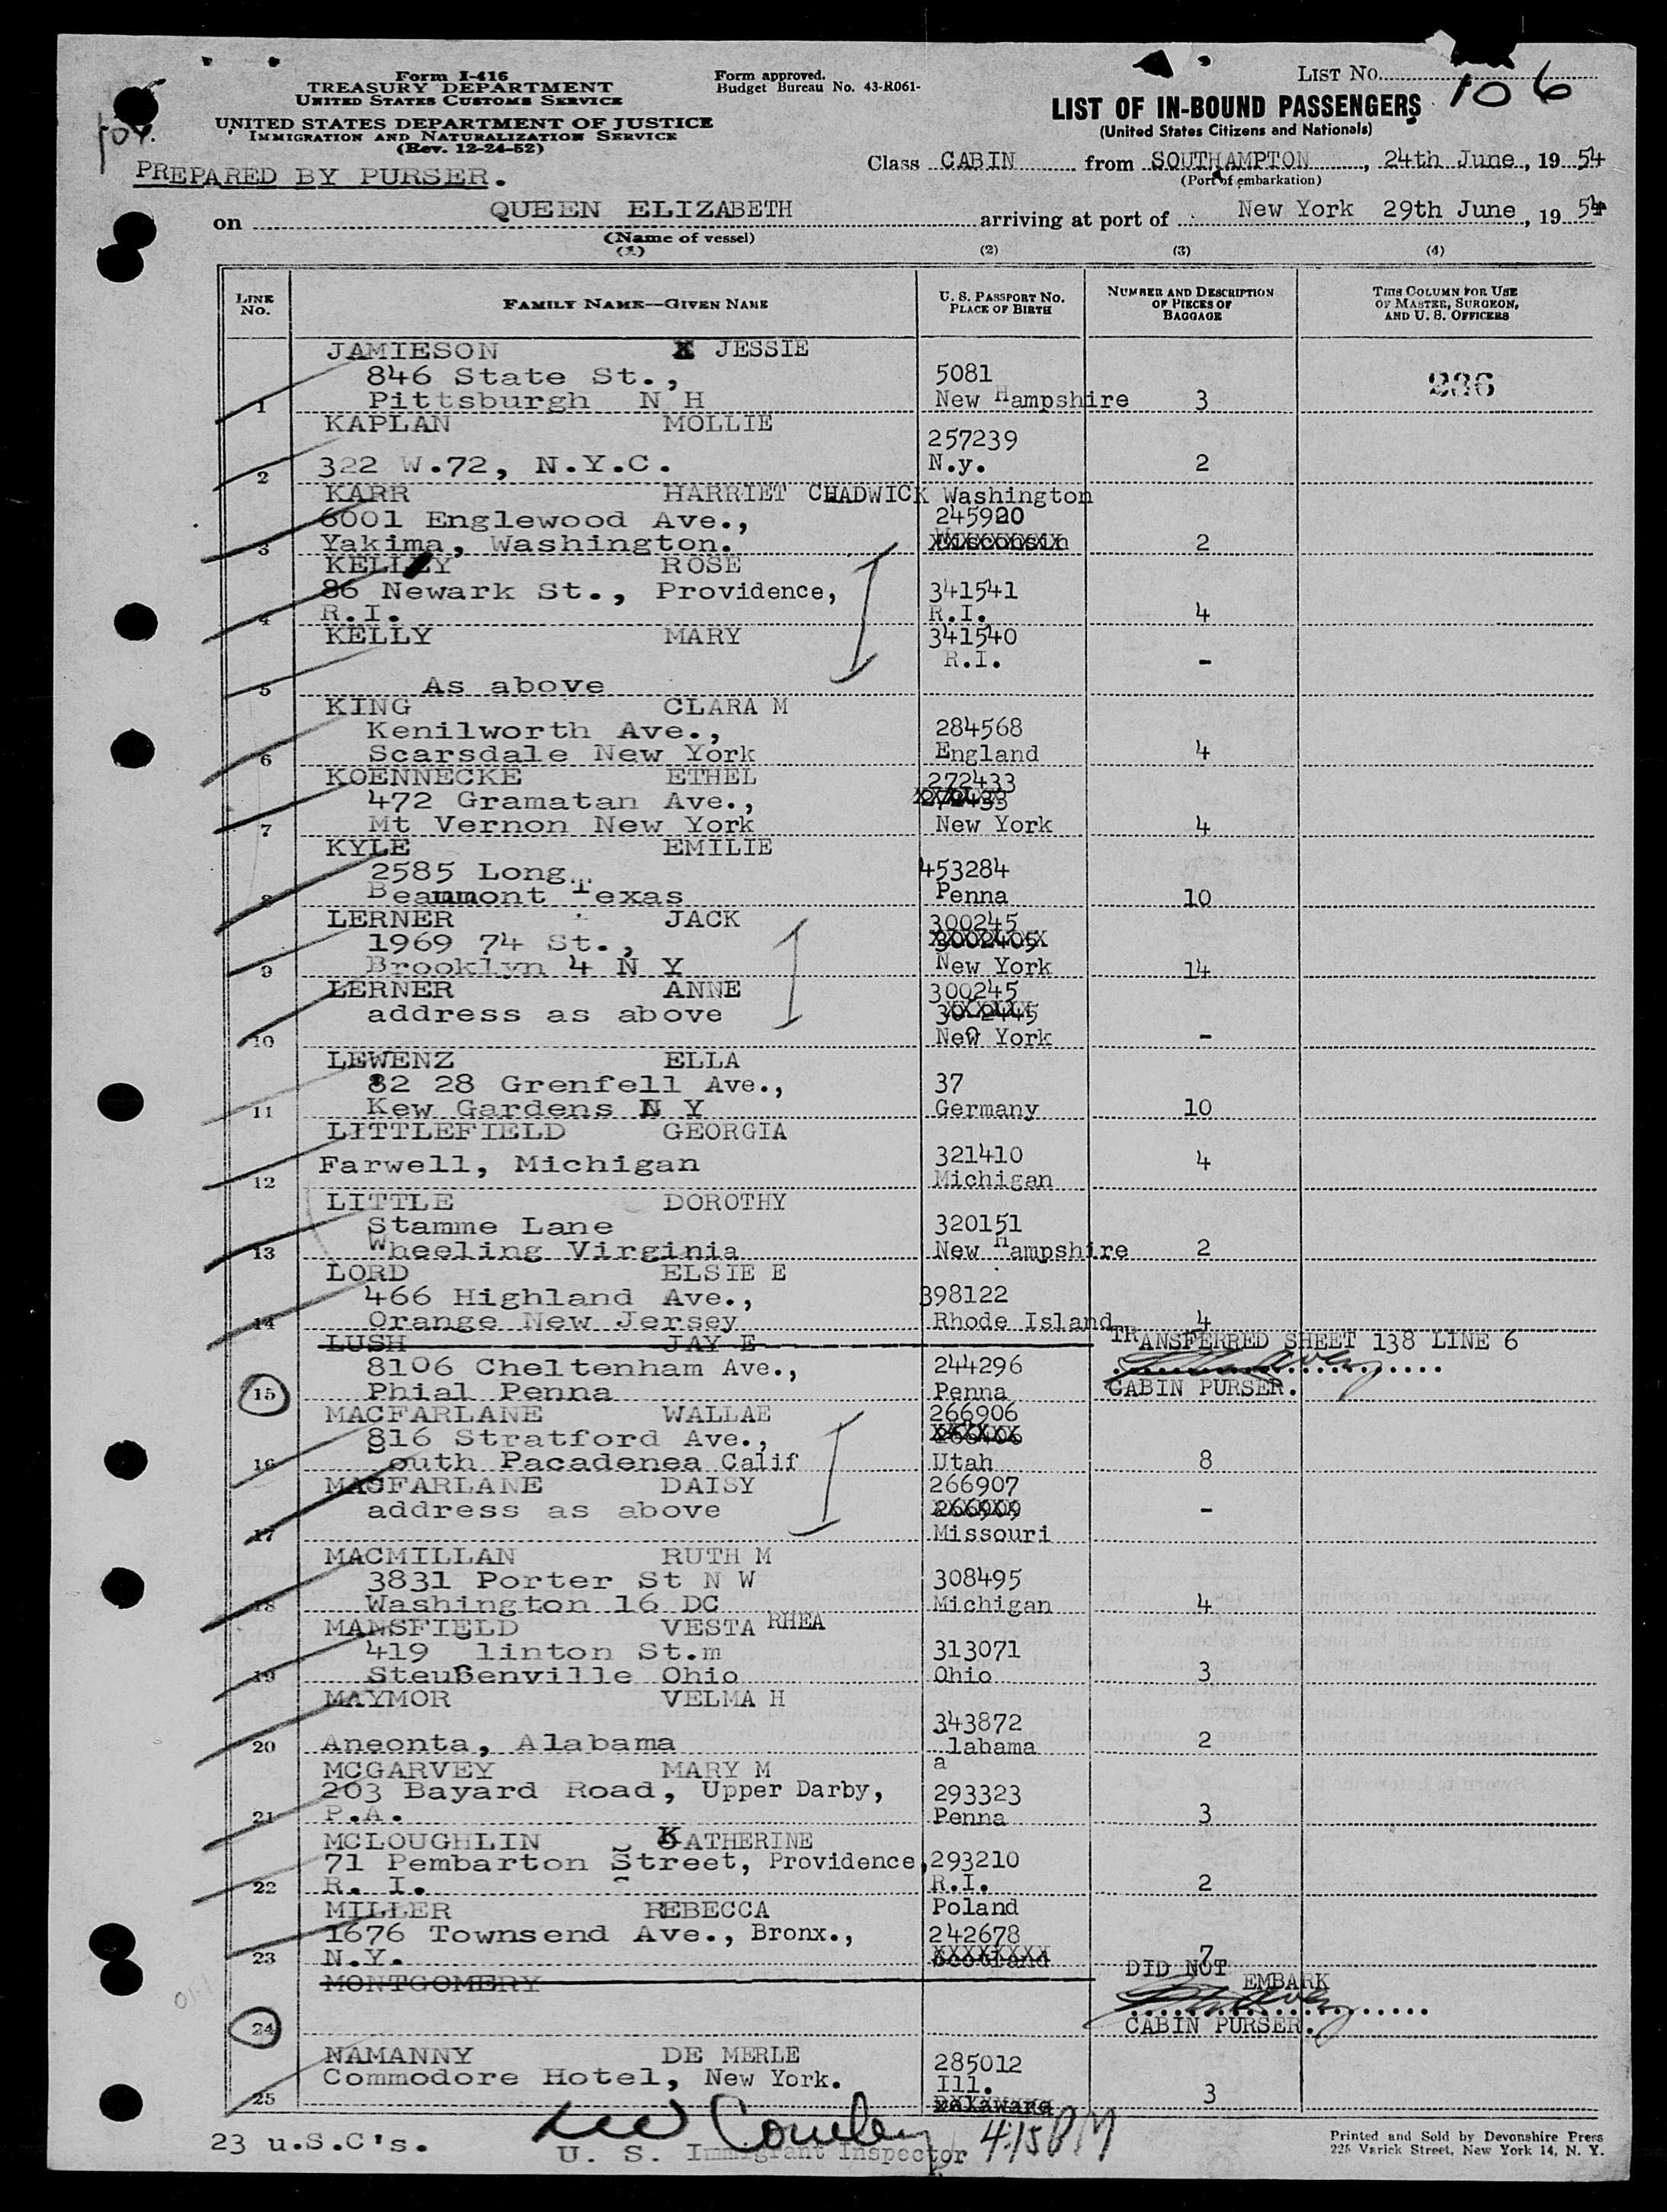 Form I-416
TREASURY DEPARTMENT
UNITED STATES CUSTOMS SERVICE
UNITED STATES DEPARTMENT OF JUSTICE
IMMIGRATION AND NATURALIZATION SERVICE
(Rev. 12-24-52)
Form approved.
Budget Bureau No. 43-R061-
LIST NO. 106
LIST OF IN-BOUND PASSENGERS
(United States Citizens and Nationals)
PREPARED BY PURSER.
Class CABIN from SOUTHAMPTON, 24th June, 19 54
(Port of embarkation)
on QUEEN ELIZABETH arriving at port of New York 29th June, 19 54
(Name of vessel)
(1) (2) (3) (4)
LINE No. FAMILY NAME—GIVEN NAME U. S. PASSPORT NO. PLACE OF BIRTH NUMBER AND DESCRIPTION OF PIECES OF BAGGAGE THIS COLUMN FOR USE OF MASTER, SURGEON, AND U. S. OFFICERS
JAMIESON JESSIE
846 State St., 5081 236
1 Pittsburgh N H New Hampshire 3
KAPLAN MOLLIE
257239
2 322 W.72, N.Y.C. N.y. 2
KARR HARRIET CHADWICK Washington
6001 Englewood Ave., 245920
3 Yakima, Washington. Wisconsin 2
KELLEY ROSE
86 Newark St., Providence, 341541
4 R.I. R.I. 4
KELLY MARY 341540
R.I. -
5 As above
KING CLARA M
Kenilworth Ave., 284568
6 Scarsdale New York England 4
KOENNECKE ETHEL 272433
472 Gramatan Ave.,
7 Mt Vernon New York New York 4
KYLE EMILIE
2585 Long. 453284
8 Beaumont Texas Penna 10
LERNER JACK 300245
1969 74 St., 3002405
9 Brooklyn 4 N Y New York 14
LERNER ANNE 300245
address as above
10 New York -
LEWENZ ELLA
82 28 Grenfell Ave., 37
11 Kew Gardens N Y Germany 10
LITTLEFIELD GEORGIA
Farwell, Michigan 321410 4
12 Michigan
LITTLE DOROTHY
Stamme Lane 320151
13 Wheeling Virginia New Hampshire 2
LORD ELSIE E
466 Highland Ave., 398122
14 Orange New Jersey Rhode Island 4
LUSH JAY E TRANSFERRED SHEET 138 LINE 6
8106 Cheltenham Ave., 244296
15 Phial Penna Penna CABIN PURSER.
MACFARLANE WALLAE 266906
816 Stratford Ave.,
16 South Pacadenea Calif Utah 8
MACFARLANE DAISY 266907
address as above 266909 -
17 Missouri
MACMILLAN RUTH M
3831 Porter St N W 308495
18 Washington 16 DC Michigan 4
MANSFIELD VESTA RHEA
419 linton St.m 313071
19 Steubenville Ohio Ohio 3
MAYMOR VELMA H
343872
20 Aneonta, Alabama labama 2
a
MCGARVEY MARY M
203 Bayard Road, Upper Darby, 293323
21 P.A. Penna 3
MCLOUGHLIN KATHERINE
71 Pembarton Street, Providence, 293210
22 R. I. R.I. 2
MILLER REBECCA Poland
1676 Townsend Ave., Bronx., 242678
23 N.Y. Scotland 7
MONTGOMERY DID NOT EMBARK
24 CABIN PURSER.
NAMANNY DE MERLE 285012
Commodore Hotel, New York. Ill.
25 Delaware 3
23 u.S.C's. 4:15 PM
U. S. Immigrant Inspector
Printed and Sold by Devonshire Press
225 Varick Street, New York 14, N. Y.